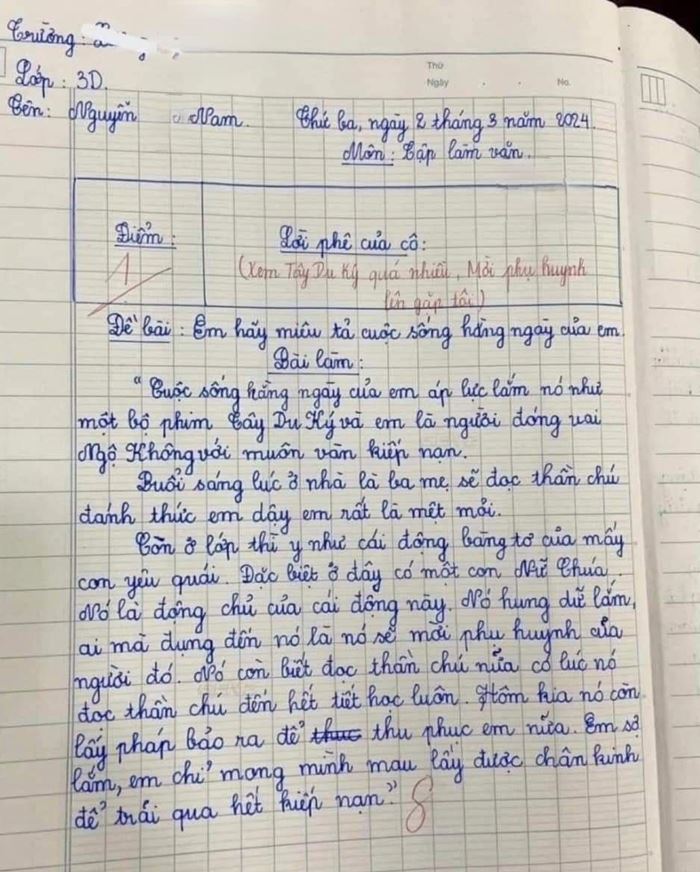 Trường:
Thứ
Ngày . . No.
Lớp: 3D.
Tên: Nguyễn Nam. Thứ ba, ngày 2 tháng 3 năm 2024.
Môn: Tập làm văn.
Điểm: Lời phê của cô:
1 (Xem Tây Du Ký quá nhiều, Mời phụ huynh
lên gặp tôi)
Đề bài: Em hãy miêu tả cuộc sống hằng ngày của em.
Bài làm:
"Cuộc sống hằng ngày của em áp lực lắm nó như
một bộ phim Tây Du Ký và em là người đóng vai
Ngộ Không với muôn vàn kiếp nạn.
Buổi sáng lúc ở nhà là ba mẹ sẽ đọc thần chú
đánh thức em dậy em rất là mệt mỏi.
Còn ở lớp thì y như cái động bàng tơ của mấy
con yêu quái. Đặc biệt ở đây có một con Nữ Chúa.
Nó là động chủ của cái động này. Nó hung dữ lắm,
ai mà đụng đến nó là nó sẽ mời phụ huynh của
người đó. Nó còn biết đọc thần chú nữa có lúc nó
đọc thần chu đến hết tiết học luôn. Hôm kia nó còn
lấy pháp bảo ra để thuc thu phục em nữa. Em sợ
lắm, em chỉ mong mình mau lấy được chân kinh
để trải qua hết kiếp nạn."